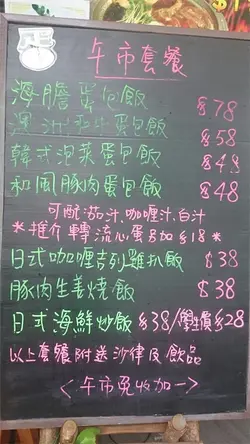 午市套餐
海膽蛋包飯 $78
蛋包飯 $58
韓式泡菜蛋包飯 $48
和風豚肉蛋包飯 $48
可配茄汁.咖喱汁.白汁
*推介轉流心蛋另加$18*
日式咖喱吉列雞扒飯 $38
豚肉生姜燒飯 $38
日式海鮮炒飯 $38/劏價$28
以上套餐附送沙律及飲品
<午市免收加一>